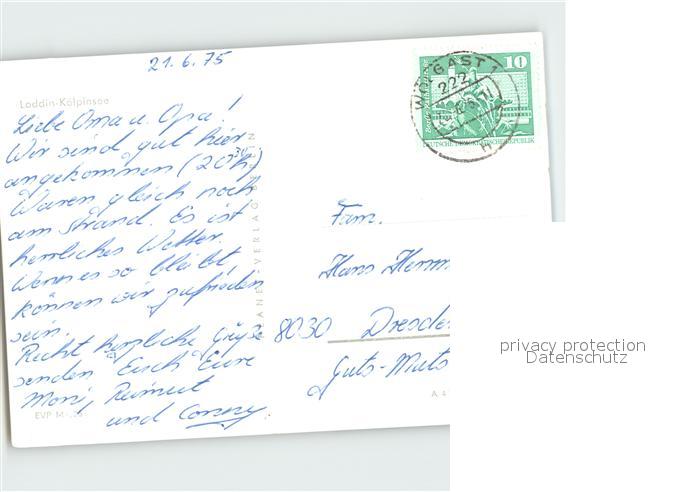 21.6.75
Loddin-Kölpinsee
Liebe Oma u. Opa!
Wir sind gut hier
angekommen (20³⁰h)
Waren gleich noch
am Strand. Es ist
herrliches Wetter.
Wenn es so bleibt,
können wir zufrieden
sein.
Recht herzliche Grüße
senden Euch Eure
Moni, Reimut
und Conny.
EVP M
VERLAG
WOLGAST 1
222
10
DEUTSCHE DEMOKRATISCHE REPUBLIK
Fam.
Hans Herm
8030 Dresde
Guts-Muts
A 4
privacy protection
Datenschutz